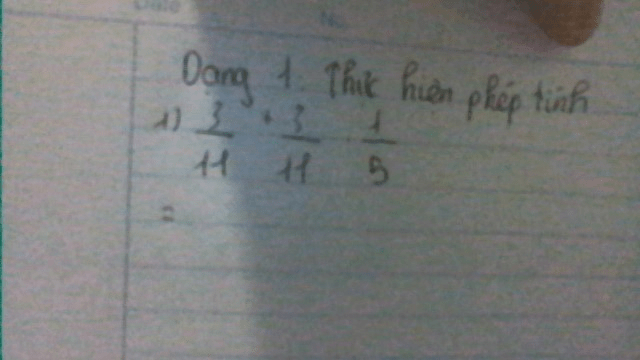 Date
No.
Dạng 1. Thực hiện phép tính
1) 3/11 + 3/11 · 1/5
=